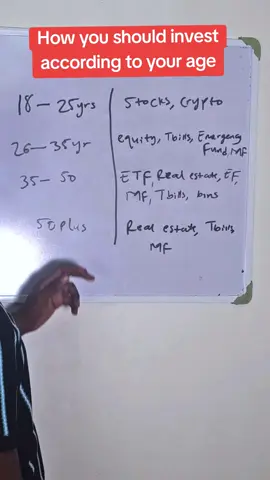 How you should invest
according to your age
18 - 25yrs Stocks, Crypto
26 - 35yr equity, Tbills, Emergency
Fund, MF
35 - 50 ETF, Real estate, EF,
MF, Tbills,
50 plus Real estate, Tbills,
MF